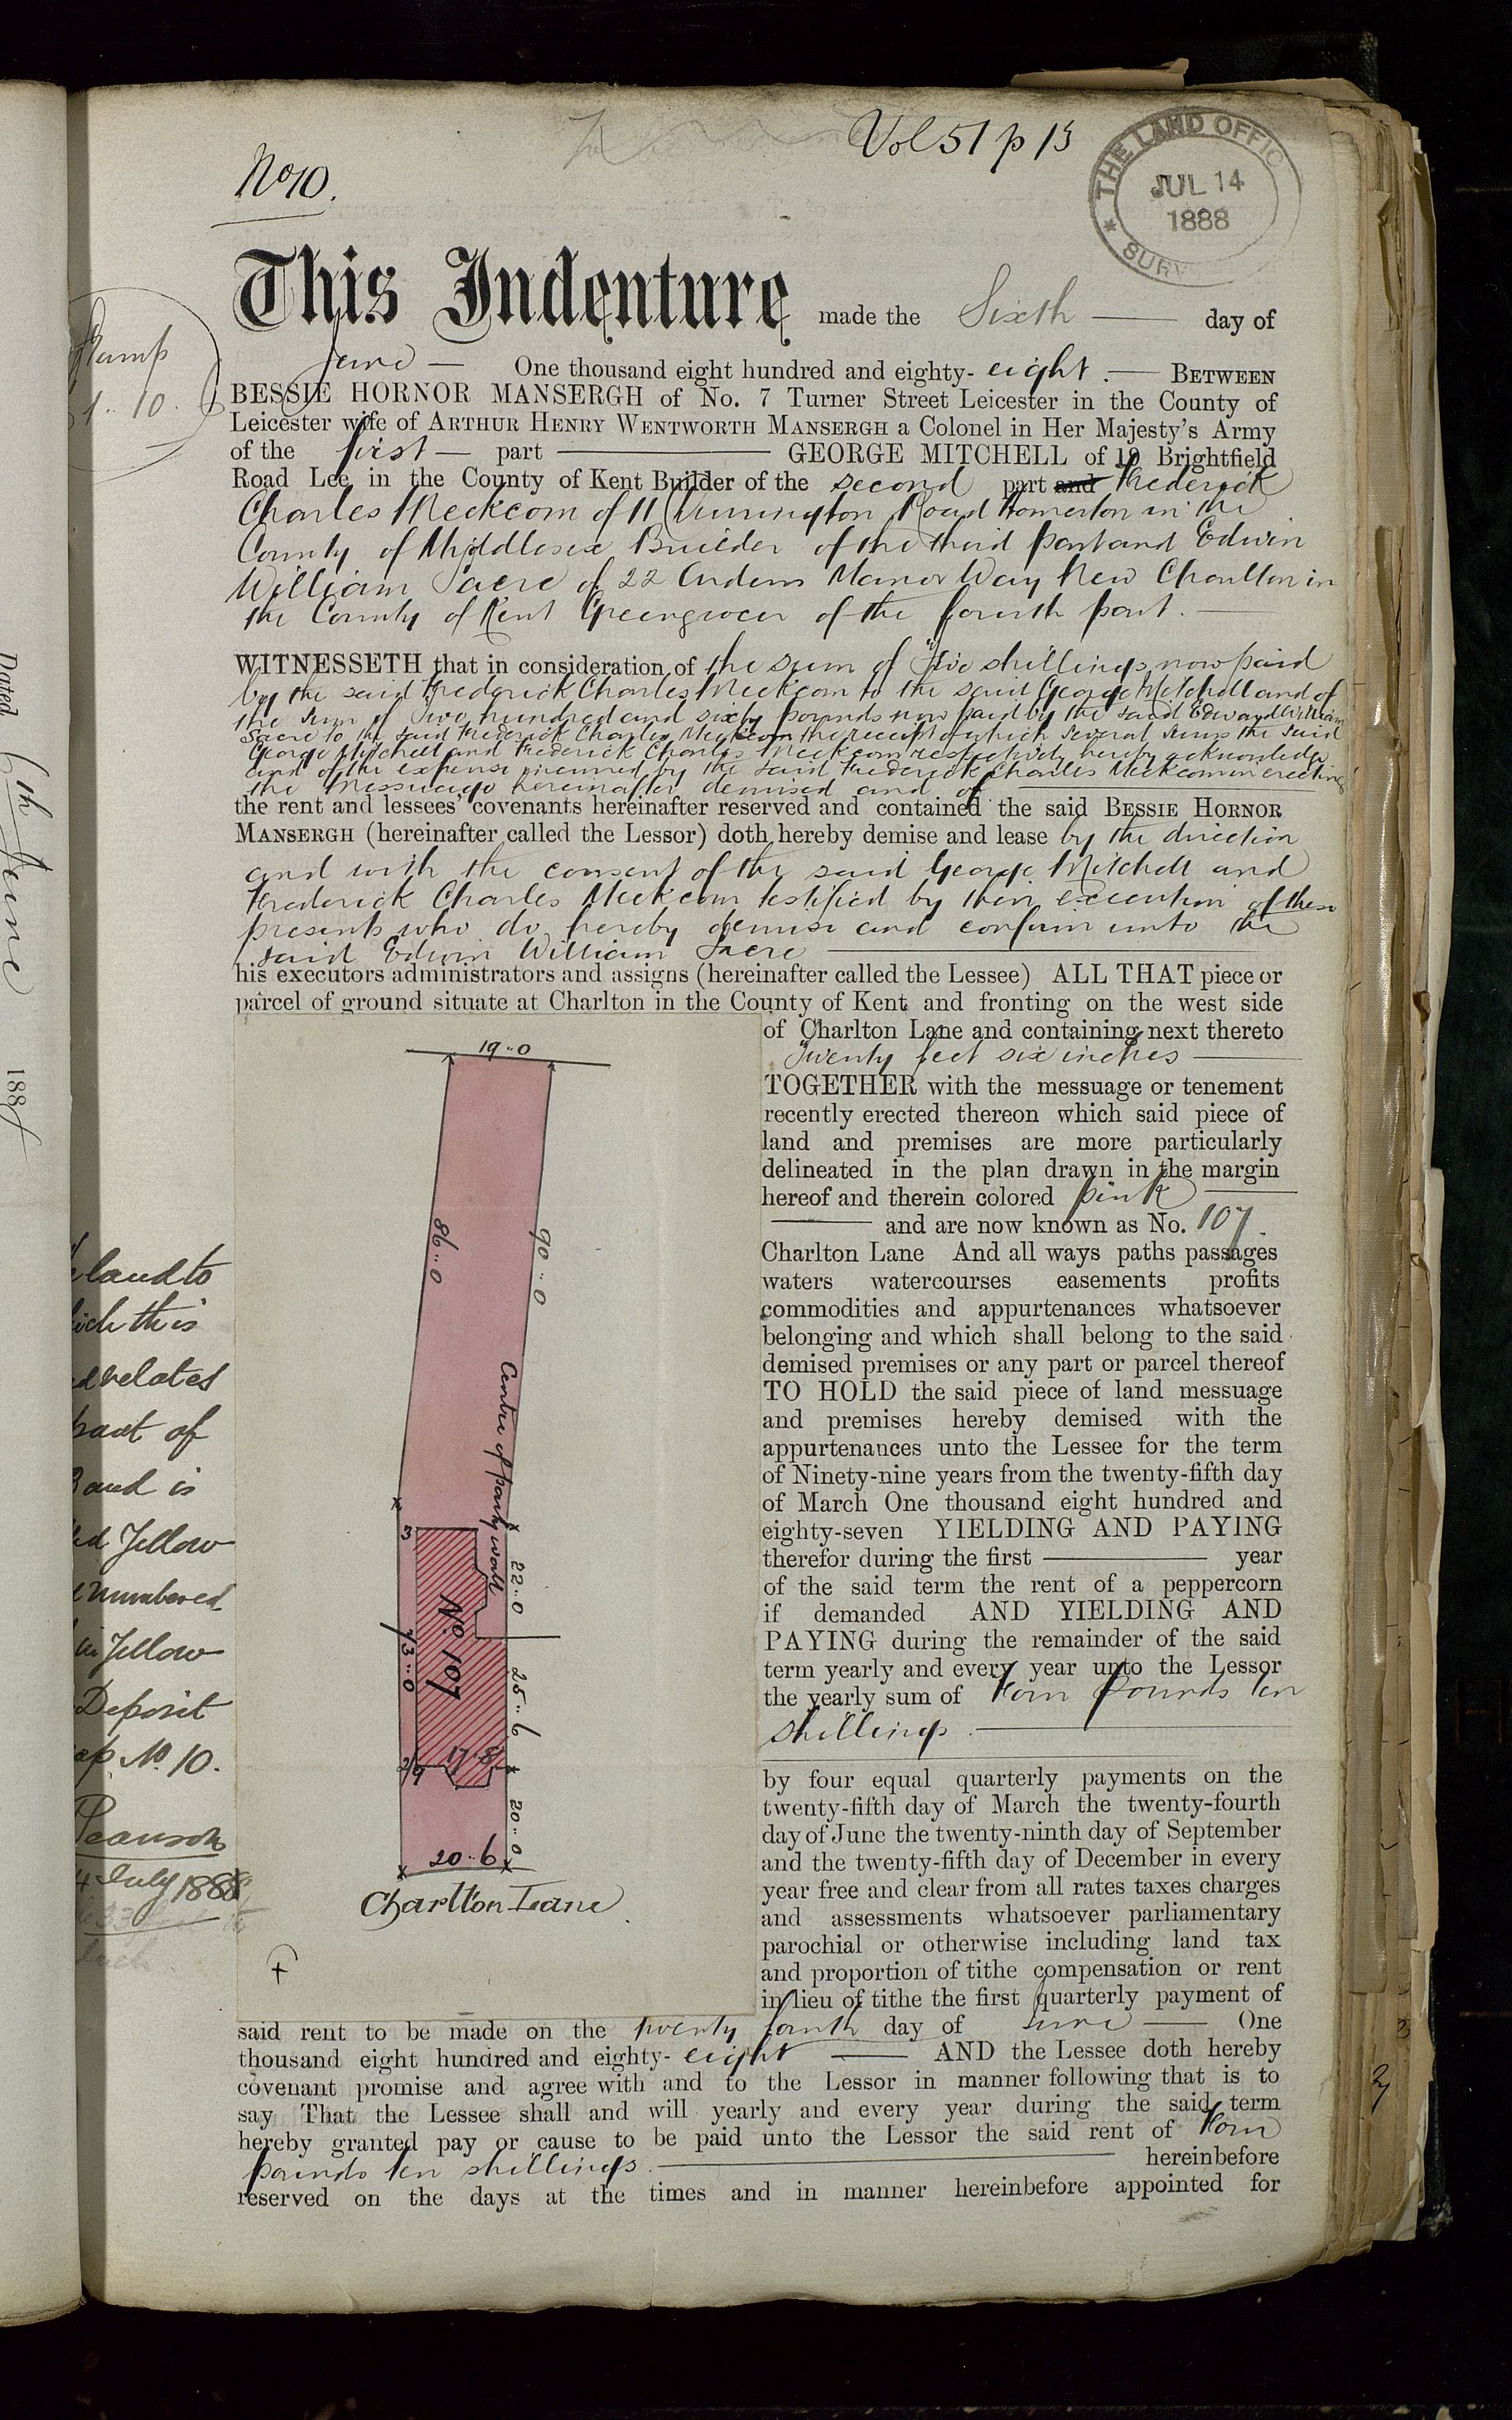 Vol 51 p 13
No 10.
THE LAND OFFIC
JUL 14
1888
SURV
This Indenture made the Sixth day of
June One thousand eight hundred and eighty- eight. BETWEEN
BESSIE HORNOR MANSERGH of No. 7 Turner Street Leicester in the County of
Leicester wife of ARTHUR HENRY WENTWORTH MANSERGH a Colonel in Her Majesty's Army
of the first part GEORGE MITCHELL of 19 Brightfield
Road Lee in the County of Kent Builder of the second part and Frederick
Charles Meekcom of 11 Road Homerton in the
County of Middlesex Builder of the third part and Edwin
William Sacre of 22 Ardens Manor Way New Charlton in
the County of Kent Greengrocer of the fourth part.
WITNESSETH that in consideration of the sum of Five shillings now paid
by the said Frederick Charles Meekcom to the said George Mitchell and of
the sum of Two hundred and sixty pounds now paid by the said Edward William
Sacre to the said Frederick Charles Meekcom the receipt of which several sums the said
George Mitchell and Frederick Charles Meekcom respectively hereby acknowledge
and of the expense incurred by the said Frederick Charles Meekcom in erecting
the messuage hereinafter demised and of
the rent and lessees' covenants hereinafter reserved and contained the said BESSIE HORNOR
MANSERGH (hereinafter called the Lessor) doth hereby demise and lease by the direction
and with the consent of the said George Mitchell and
Frederick Charles Meekcom testified by their execution of these
presents who do hereby demise and confirm unto the
said Edwin William Sacre
his executors administrators and assigns (hereinafter called the Lessee) ALL THAT piece or
parcel of ground situate at Charlton in the County of Kent and fronting on the west side
of Charlton Lane and containing next thereto
Twenty feet six inches
TOGETHER with the messuage or tenement
recently erected thereon which said piece of
land and premises are more particularly
delineated in the plan drawn in the margin
hereof and therein colored pink
and are now known as No. 107.
Charlton Lane And all ways paths passages
waters watercourses easements profits
commodities and appurtenances whatsoever
belonging and which shall belong to the said
demised premises or any part or parcel thereof
TO HOLD the said piece of land messuage
and premises hereby demised with the
appurtenances unto the Lessee for the term
of Ninety-nine years from the twenty-fifth day
of March One thousand eight hundred and
eighty-seven YIELDING AND PAYING
therefor during the first year
of the said term the rent of a peppercorn
if demanded AND YIELDING AND
PAYING during the remainder of the said
term yearly and every year unto the Lessor
the yearly sum of Four pounds ten
shillings.
by four equal quarterly payments on the
twenty-fifth day of March the twenty-fourth
day of June the twenty-ninth day of September
and the twenty-fifth day of December in every
year free and clear from all rates taxes charges
and assessments whatsoever parliamentary
parochial or otherwise including land tax
and proportion of tithe compensation or rent
in lieu of tithe the first quarterly payment of
said rent to be made on the twenty fourth day of June One
thousand eight hundred and eighty- eight AND the Lessee doth hereby
covenant promise and agree with and to the Lessor in manner following that is to
say That the Lessee shall and will yearly and every year during the said term
hereby granted pay or cause to be paid unto the Lessor the said rent of Four
pounds ten shillings. hereinbefore
reserved on the days at the times and in manner hereinbefore appointed for
19..0
86..0
90..0
Centre of party wall
3
22..0
No. 107
43..0
25..6
2/9
17..8
20..0
20..6
Charlton Lane
Stamp
1..10.
Dated 6th June 188
land to
ich this
relates
part of
and is
Yellow
numbered
in Yellow
Deposit
ap No 10.
Pearson
4 July 1888